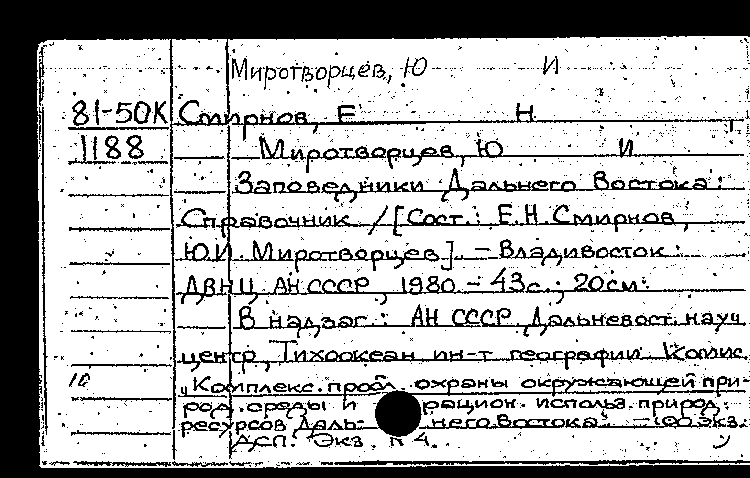 Миротворцев, Ю И
81-50К Смирнов, Е Н
1188 Миротворцев, Ю И
Заповедники Дальнего Востока:
Справочник / [Сост.: Е.Н.Смирнов,
Ю.И. Миротворцев]. - Владивосток:
ДВНЦ АН СССР, 1980 - 43с.; 20см.
В надзаг.: АН СССР, Дальневост. науч.
центр, Тихоокеан. ин-т географии. Комис.
10 „Комплекс. пробл. охраны окружающей при-
род. среды и рацион. использ. природ.
ресурсов Даль- него Востока". - 100 экз.
ДСП. Экз. 4.